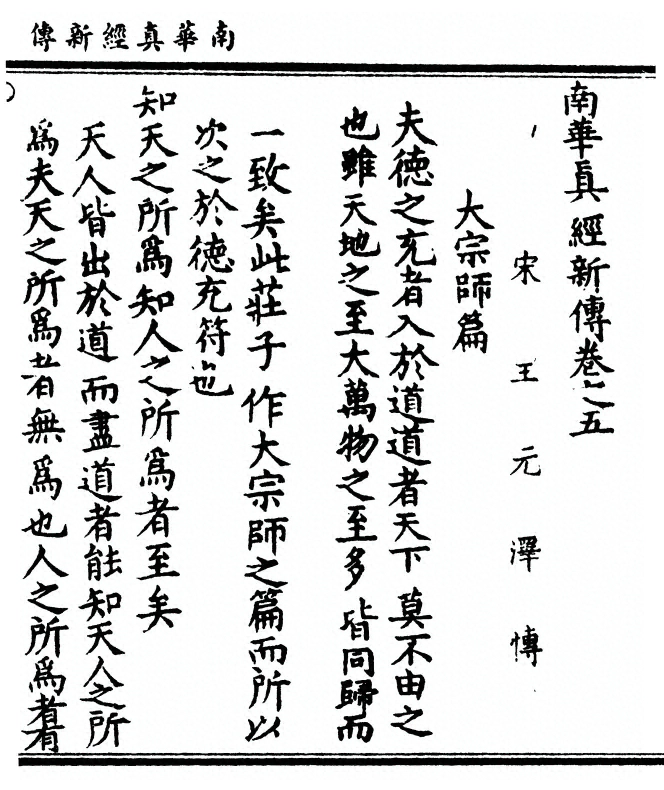 南華真經新傳
南華眞經新傳卷之五
宋王元澤傳
大宗師篇
夫德之充者入於道道者天下莫不由之
也雖天地之至大萬物之至多皆同歸而
一致矣此莊子作大宗師之篇而所以
次之於德充符也
知天之所爲知人之所爲者至矣
天人皆出於道而盡道者能知天人之所
爲夫天之所爲者無爲也人之所爲者有